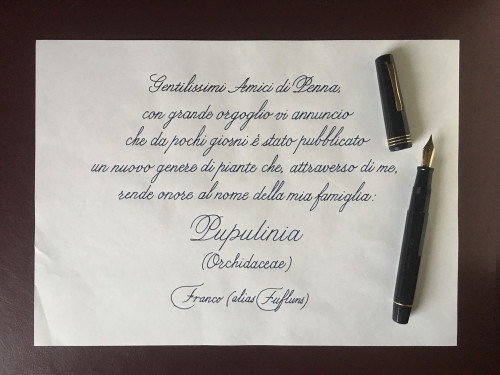 Gentilissimi Amici di Penna,
con grande orgoglio vi annuncio
che da pochi giorni è stato pubblicato
un nuovo genere di piante che, attraverso di me,
rende onore al nome della mia famiglia:
Pupulinia
(Orchidaceae)
Franco (alias Fufluns)